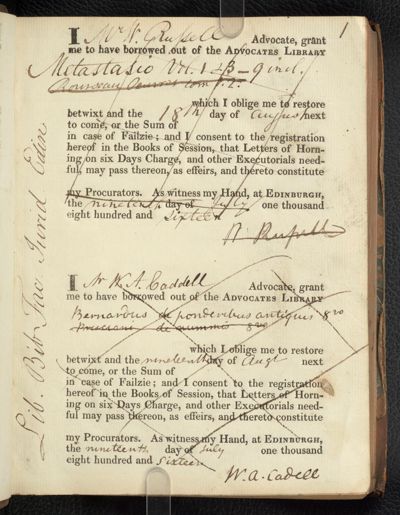 1
I Mr W. Russell Advocate, grant
me to have borrowed out of the ADVOCATES LIBRARY
Metastasio Vol. 1 & 3 - 9 incl.
which I oblige me to restore
betwixt and the 18th day of August next
to come, or the Sum of
in case of Failzie; and I consent to the registration
hereof in the Books of Session, that Letters of Horn-
ing on six Days Charge, and other Executorials need-
ful, may pass thereon, as effeirs, and thereto constitute
my Procurators. As witness my Hand, at EDINBURGH,
the nineteenth day of July one thousand
eight hundred and sixteen
W. Russell
I Mr W. A. Caddell Advocate, grant
me to have borrowed out of the ADVOCATES LIBRARY
Bernardus de ponderibus antiquis 8vo
de nummis 8vo
which I oblige me to restore
betwixt and the nineteenth day of Augt next
to come, or the Sum of
in case of Failzie; and I consent to the registration
hereof in the Books of Session, that Letters of Horn-
ing on six Days Charge, and other Executorials need-
ful may pass thereon, as effeirs, and thereto constitute
my Procurators. As witness my Hand, at EDINBURGH,
the nineteenth day of July one thousand
eight hundred and sixteen
W. A. Cadell
Lib. Bib. Fac. Jurid. Edin